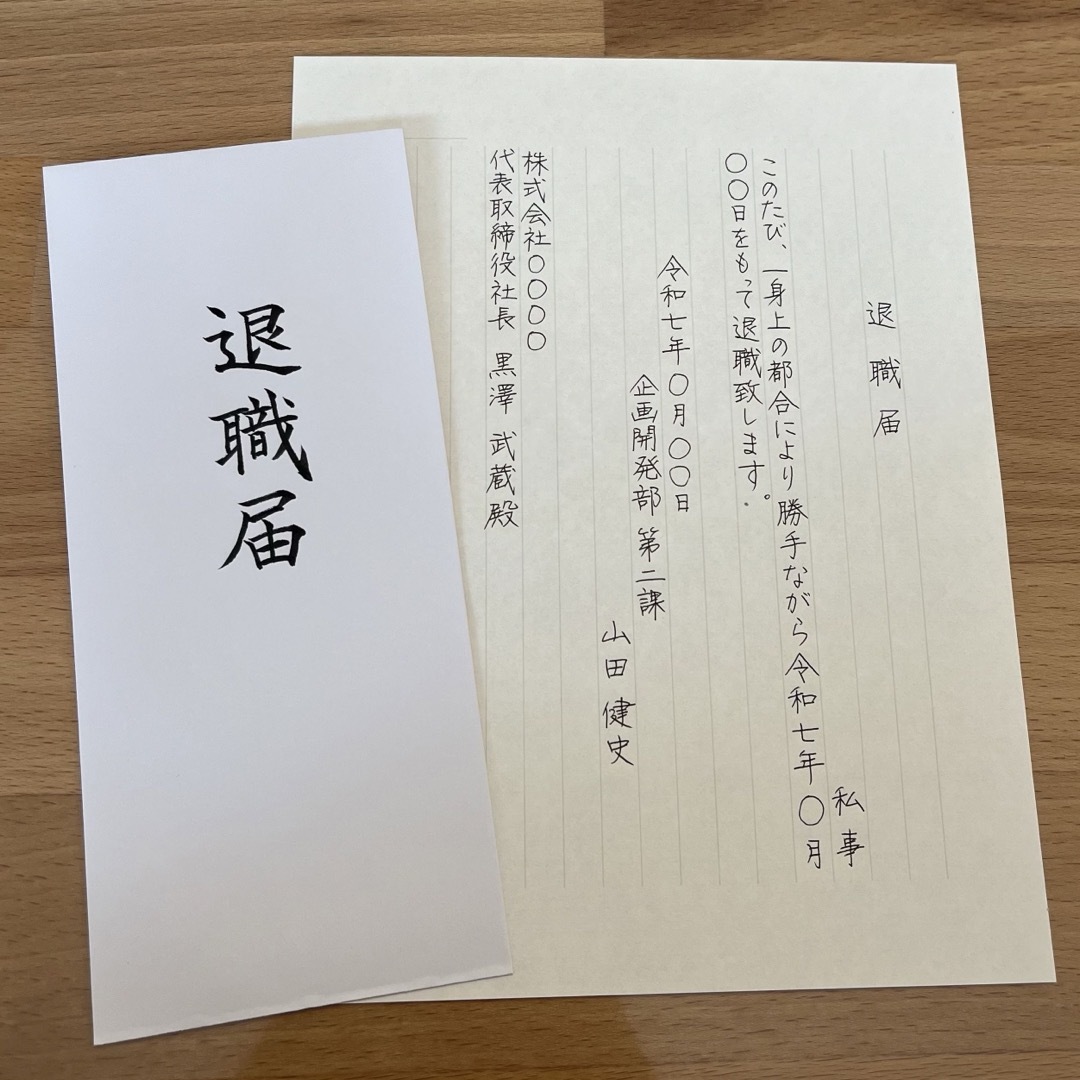 退職届
私事
このたび、一身上の都合により勝手ながら令和七年〇月
〇〇日をもって退職致します。
令和七年〇月〇〇日
企画開発部 第二課
山田健史
株式会社〇〇〇〇
代表取締役社長 黒澤 武蔵殿
退職届